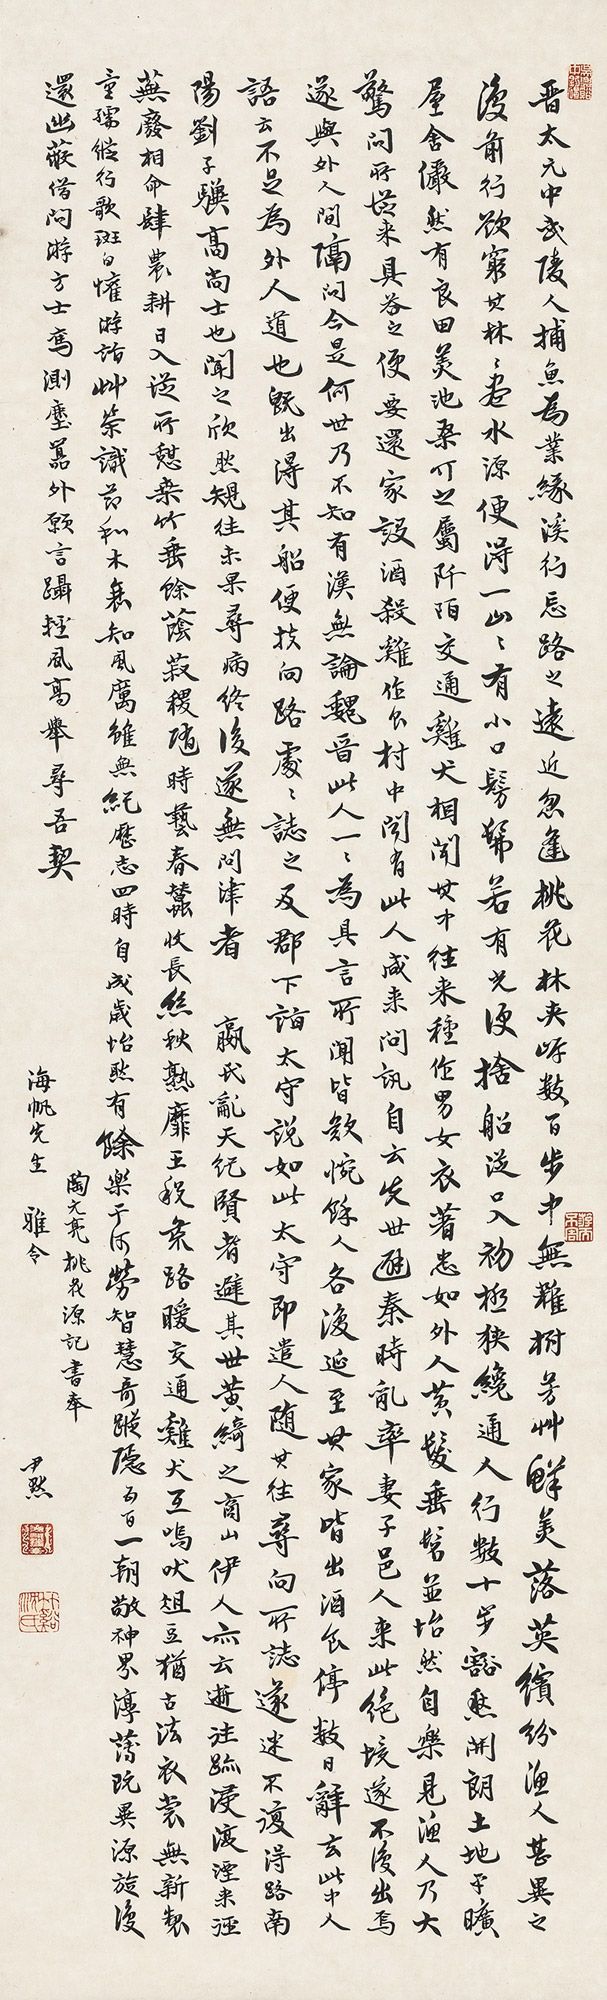 晋太元中武陵人捕魚為業緣溪行忘路之遠近忽逢桃花林夾岸數百步中無雜樹芳艸鮮美落英繽紛漁人甚異之
復前行欲窮其林林盡水源便得一山山有小口髣髴若有光便捨船從口入初極狹纔通人行數十步豁然開朗土地平曠
屋舍儼然有良田美池桑竹之屬阡陌交通雞犬相聞其中往来種作男女衣著悉如外人黃髮垂髫並怡然自樂見漁人乃大
驚問所從来具答之便要還家設酒殺雞作食村中聞有此人咸来問訊自云先世避秦時亂率妻子邑人来此絕境遂不復出焉
遂與外人間隔問今是何世乃不知有漢無論魏晋此人一一為具言所聞皆歎惋餘人各復延至其家皆出酒食停數日辭去此中人
語云不足為外人道也既出得其船便扶向路處處誌之及郡下詣太守說如此太守即遣人隨其往尋向所誌遂迷不復得路南
陽劉子驥高尚士也聞之欣然規往未果尋病終後遂無問津者 嬴氏亂天紀賢者避其世黃綺之商山伊人亦云逝往跡浸復湮来逕
蕪廢相命肆農耕日入從所憩桑竹垂餘蔭菽稷隨時藝春蠶收長絲秋熟靡王稅荒路曖交通雞犬互鳴吠俎豆猶古法衣裳無新製
童孺縱行歌斑白懽游詣艸榮識節和木衰知風厲雖無紀歷志四時自成歲怡然有餘樂于何勞智慧奇蹤隱五百一朝敞神界淳薄既異源旋復
還幽蔽借問游方士焉測塵囂外願言躡輕風高舉尋吾契
陶元亮桃花源記書奉
海帆先生 雅令
尹默